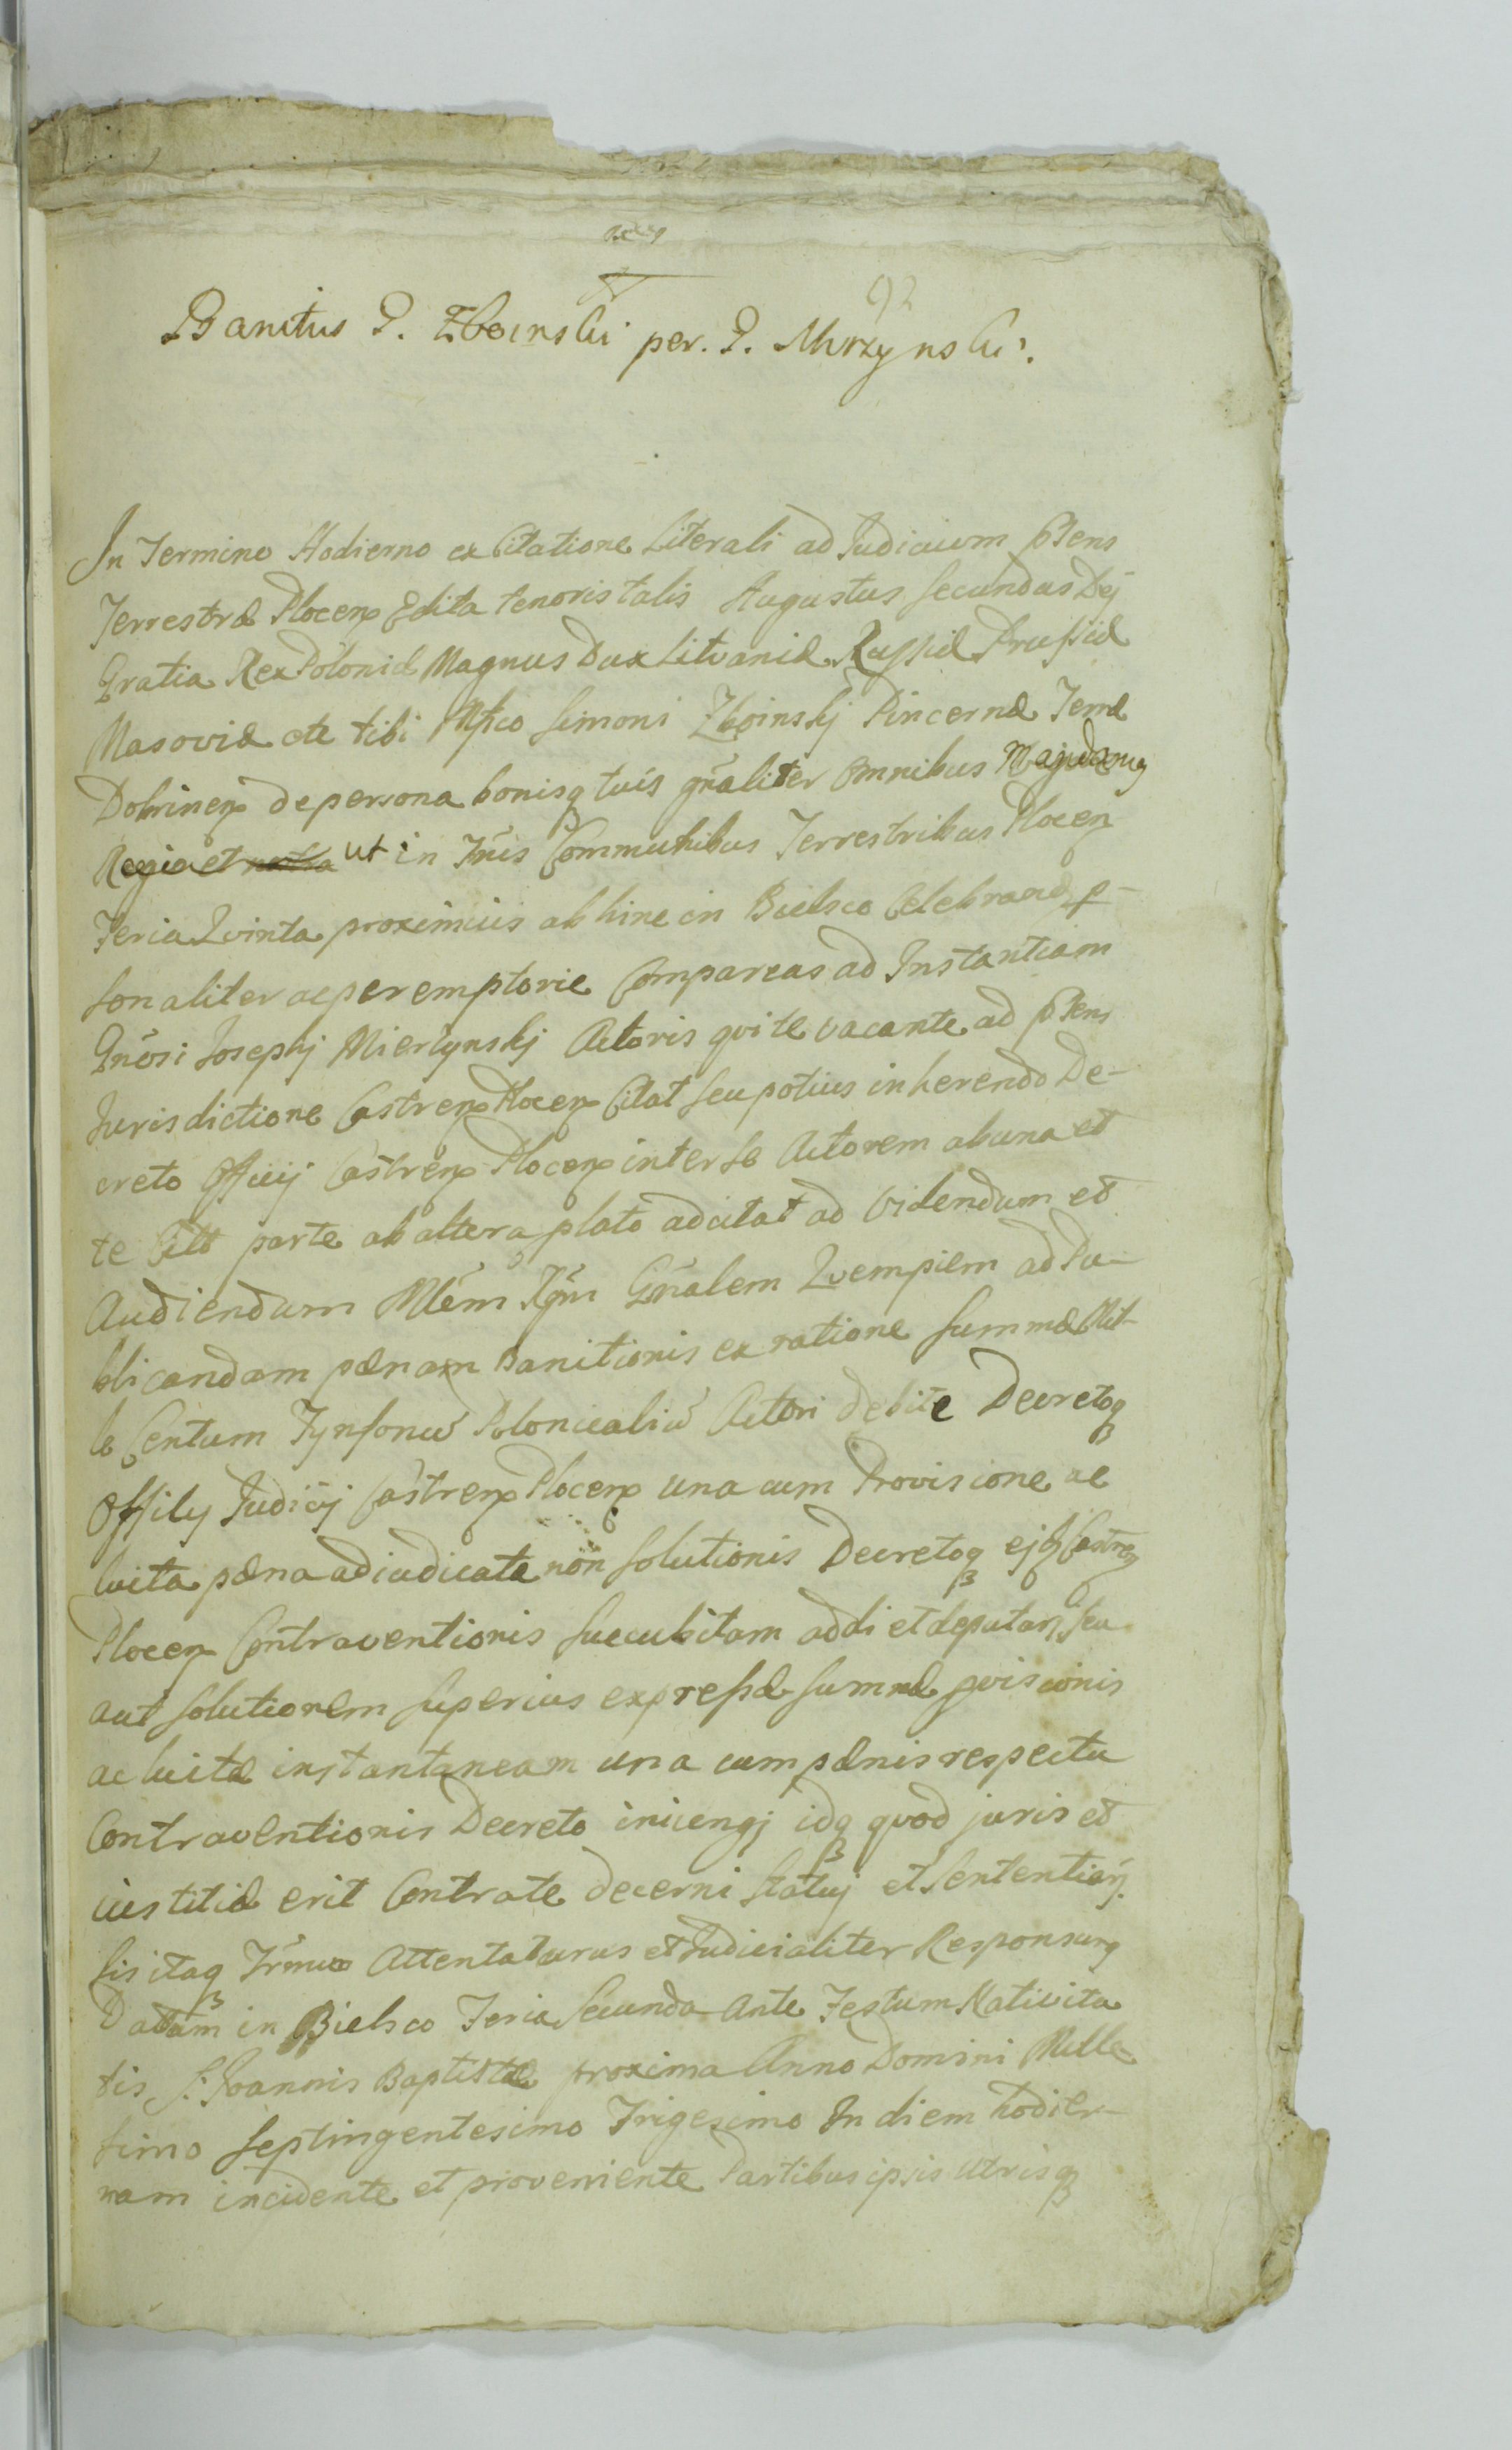 92
Banitus P. Zboinski per. P. Mirzynski.
In Termino Hodierno ex Citatione Literali ad Judicium pñens
Terrestræ Plocen Edita tenoris talis Augustus Secundus Dej
Gratia Rex Poloniæ Magnus Dux Litvaniæ Russiæ Prussiæ
Masoviæ ete tibi Mfco Simoni Zboinskj Pincernæ Terræ
Dobrinen de persona bonisq tuis gñaliter Omnibus Mandamus
Regia et ut in Tñis Communibus Terrestribus Plocen
Feria Qvinta proximius abhinc in Bielsco Celebrand p-
sonaliter ac peremptorie Compareas ad Instantiam
Gñosi Josephj Mierzynskj Actoris qvi te vacante ad pñens
Jurisdictione Castren Plocen Citat seu potius inherendo De-
creto Officij Castren Plocen inter se Actorem ab una et
te Citt parte ab altera plato adcitat ad Videndum et
Audiendum Mlem Rgni Gñalem Qvempiem ad Pu-
blicandam pænam Banitionis ex ratione summæ Mil-
le Centum Tynfonũ Polonicaliũ Actori debite Decretoq
Officij Judicij Castren Plocen una cum Provisione ac
luita pæna adiudicata non solutionis Decretoq ejq Castren
Plocen Contraventionis Succubitam addi et deputarj, seu
aut solutionem superius expressæ summæ pvisionis
ac luitæ instantaneam una cum pænis respectu
Contraventionis Decreto iniungj idq qvod juris et
iustitiæ erit Contra te decerni statuj et Sententiarj
sis itaq Trmũ Attentaturus et Judicialiter Responsurq
Datum in Bielsco Feria Secunda Ante Festum Nativita
tis S. Joannis Baptistæ proxima Anno Domini Mille
simo Septingentesimo Trigesimo In diem hodier-
nam incidente et proveniente Partibus ipsis Utrisq